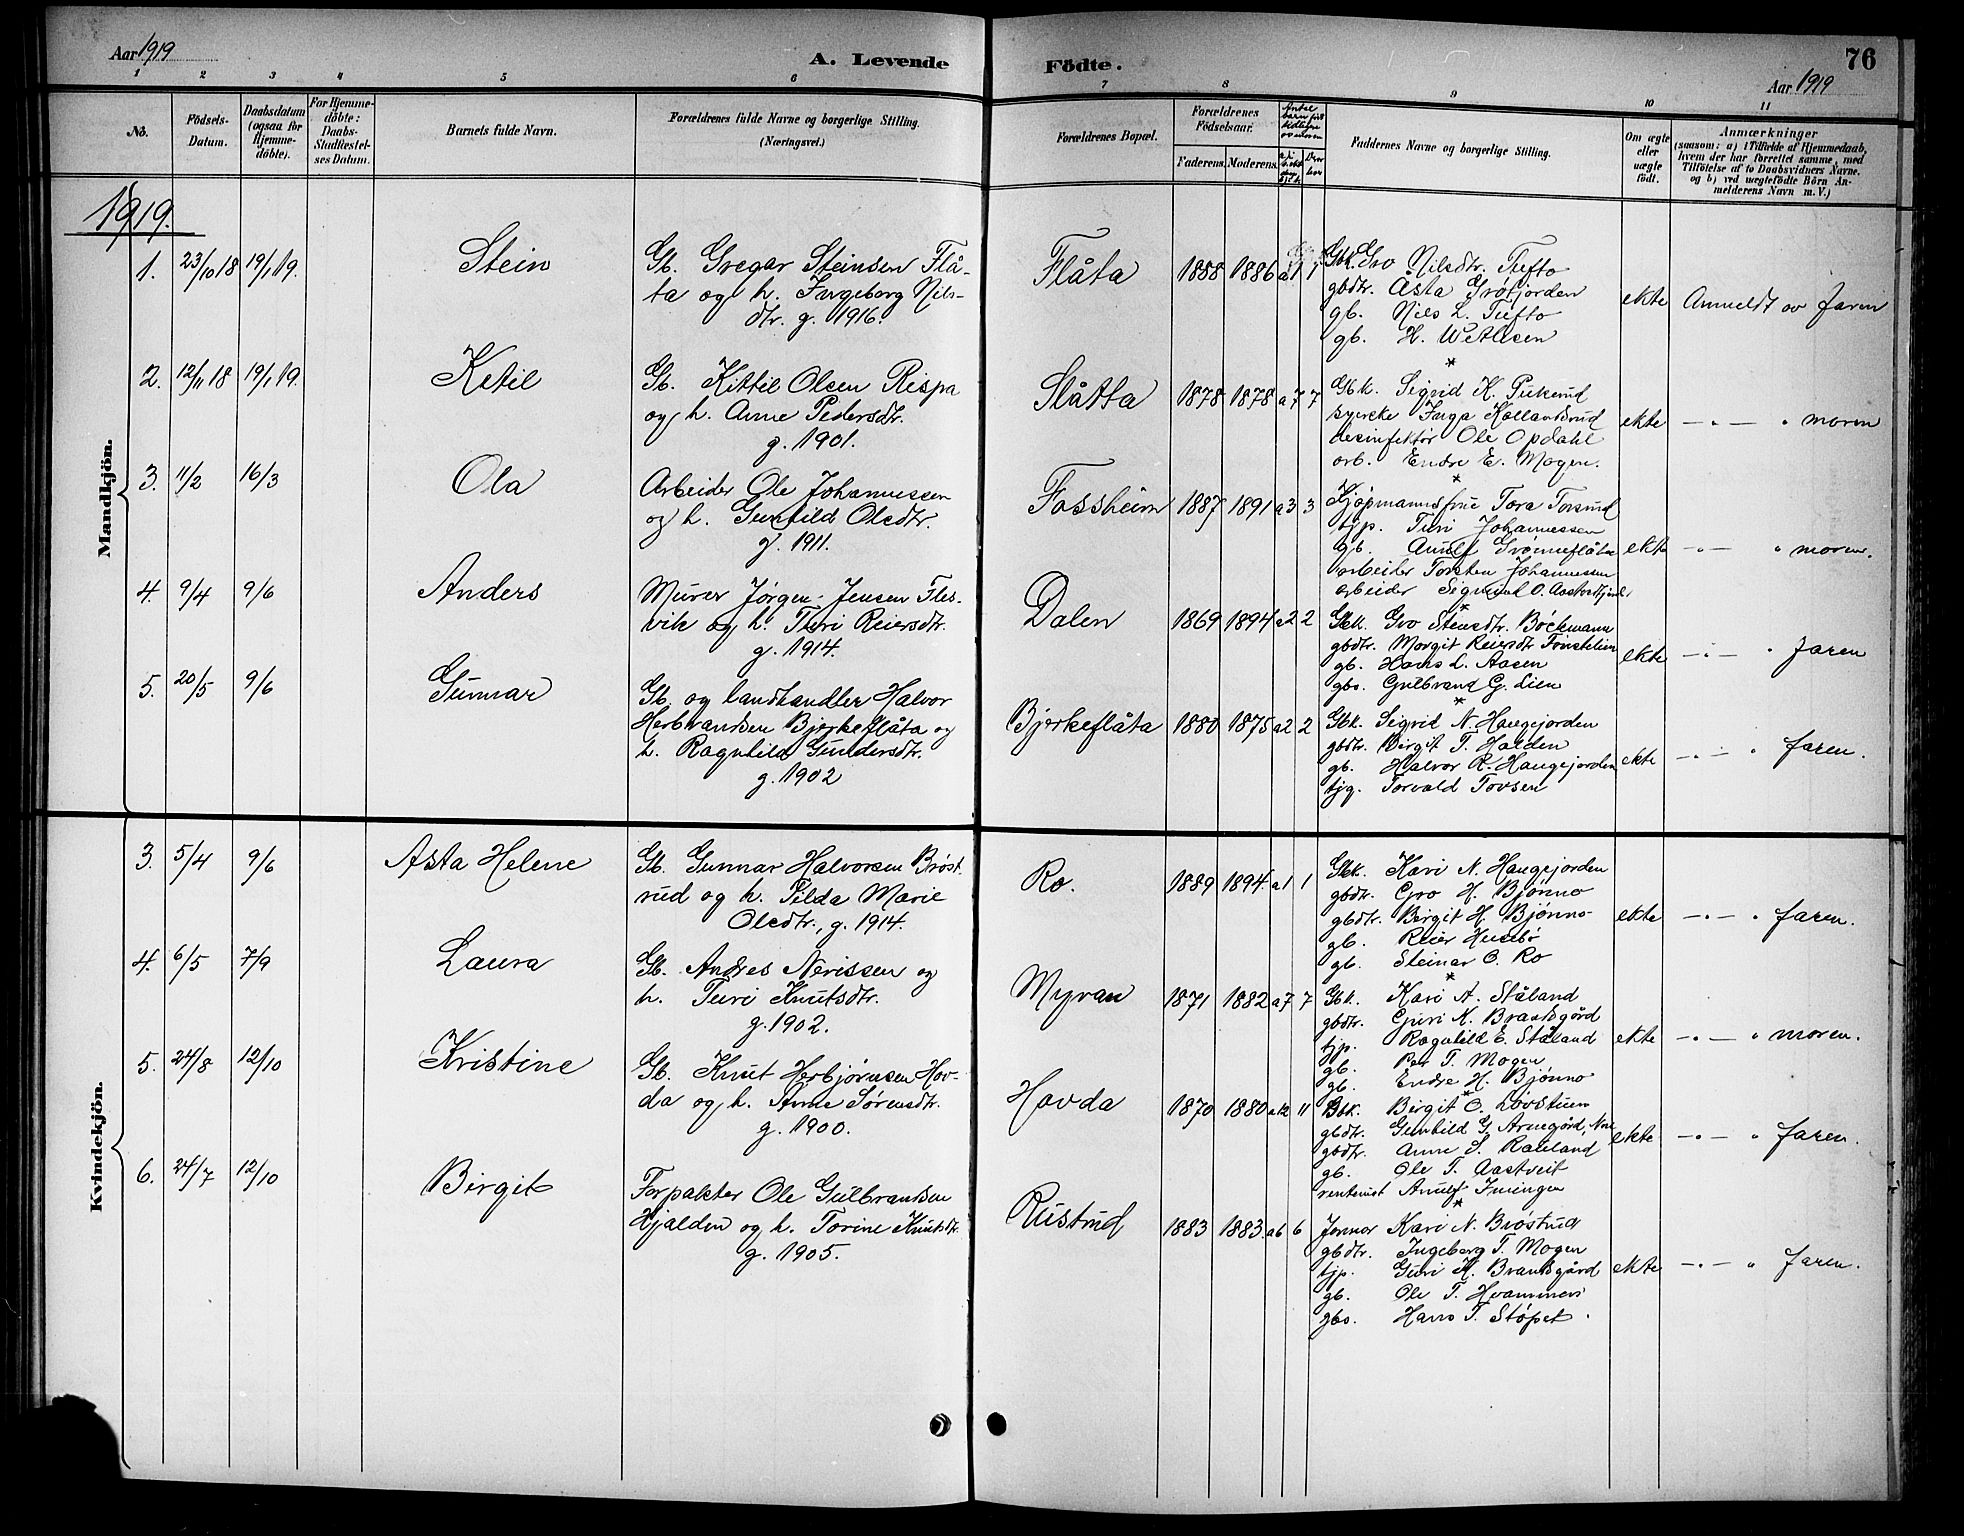 Aar 1919
A. Levende
Födte.
76
Aar 1919
1 2 3 4 5 6
7 8 9 10 11
No.
Födsels-
Datum.
Daabsdatum
(ogsaa for
Hjemme-
döbte).
For Hjemme-
döbte:
Daabs-
Stadfæstel-
ses Datum.
Barnets fulde Navn.
Forældrenes fulde Navne og borgerlige Stilling.
(Næringsvei.)
Forældrenes Bopæl.
Forældrenes
Födselsaar.
Faderens. Moderens.
Faddernes Navne og borgerlige Stilling.
Om ægte
eller
uægte
født.
Anmærkninger
(saasom: a) i Tilfælde af Hjemmedaab,
hvem der har forrettet samme, med
Tilföielse af to Daabsvidners Navne.
og b) ved uægtefödte Börn An-
melderens Navn m. V.)
1919.
Mandkjön.
1. 23/10 18 19/1 19. Stein
Gb. Gregar Steinsen Flå-
ta og h. Ingeborg Nils-
dtr. g. 1916.
Flåta 1888 1886 a1 1
Gbk. Gro Nilsdtr. Tufto
gbdtr. Åsta Grøtjorden
gb. Nils L. Tufto
gb. H. Wetlesen
ekte Anmeldt av faren
2. 12/11 18 19/1 19. Ketil
Gb. Kittil Olsen Rispa
og h. Anne Pedersdtr.
g. 1901.
Slåtta 1878 1878 a7 7
Gbk. Sigrid K. Pukerud
syerske Inga Kollandsrud
desinfektør Ole Opdahl
arb. Endre E. Mogen.
ekte — " — " moren
3. 11/2 16/3 Ola
Arbeider Ole Johannessen
og h. Gunhild Olsdtr.
g. 1911.
Fossheim 1887 1891 a3 3
Kjøpmannsfrue Tora Torsrud
tjp. Turi Johannessen
gb. Anulf Grønneflåta
arbeider Torsten Johannessen
arbeider Sigmund O.
ekte — " — " moren.
4. 9/4 9/6 Anders
Murer Jørgen Jensen Fles-
vik og h. Turi Reiersdtr.
g. 1914.
Dalen 1869 1894 a2 2
Gbk. Gro Stensdtr. Böckmann
gbdtr. Margit Reiersdtr Fönstelien
gb. Hans L. Aasen
gbs. Gulbrand G. Lien
ekte — " — " faren
5. 20/5 9/6 Gunnar
Gb. og landhandler Halvor
Herbrandsen Bjerkeflåta og
h. Ragnhild Gundersdtr.
g. 1902
Bjerkeflåta 1880 1875 a2 2
Gbk. Sigrid N. Haugejorden
gbdtr. Birgit T. Halden
gb. Halvor R. Haugejorden
tjg. Torvald Tovsen
ekte — " — " faren.
Kvindekjön.
3. 5/4 9/6 Asta Helene
Gb. Gunnar Halvorsen Brøst-
rud og h. Tilda Marie
Olsdtr., g. 1914.
Ro. 1889 1894. a1 1
Gbk. Kari N. Haugejorden
gbdtr. Gro H. Bjønno
gbdtr. Birgit H. Bjønno
gb. Reier Husebø
gb. Steinar O. Ro
ekte — " — " faren.
4. 6/5 7/9 Laura
Gb. Andres Nerissen og
h. Turi Knutsdtr.
g. 1902.
Myran 1871 1882 a7 7
Gbk. Kari A. Ståland
gbdtr. Guri K. Brandsgård
tjp. Ragnhild E. Ståland
gb. Per T. Mogen
gb. Endre H. Bjønno
ekte — " — " moren.
5. 24/8 12/10 Kristine
Gb. Knut Herbjørnsen Hov-
da og h. Anne Sørensdtr.
g. 1900.
Hovda 1870 1880 a12 11
Gbk. Birgit O. Løvstuen
gbdtr. Gunhild G. Arnegård, Nore
gbdtr. Anne S. Rauland
gb. Ole T. Aastveit
rentenist Anulf Imingen
ekte — " — " faren.
6. 24/7 12/10 Birgit
Forpakter Ole Gulbrandsen
Hjalden og h. Torine Knutsdtr.
g. 1905.
Rustrud 1883 1883. a6 6
Jormor Kari N. Brøstrud
gbdtr. Ingeborg T. Mogen
tjp. Guri K. Brandsgård
gb. Ole T. Hvammen
gbs. Hans T. Støpet.
ekte — " — " faren.